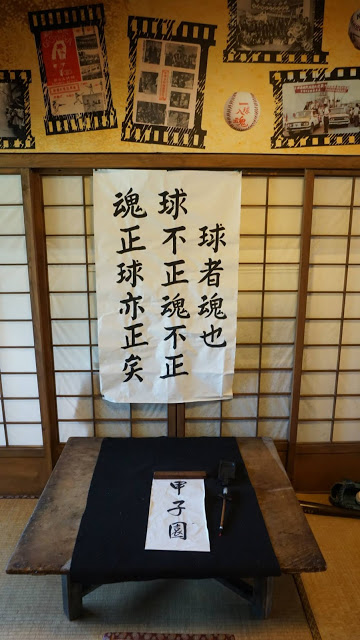 球者魂也
球不正魂不正
魂正球亦正矣
甲子園
一球入魂